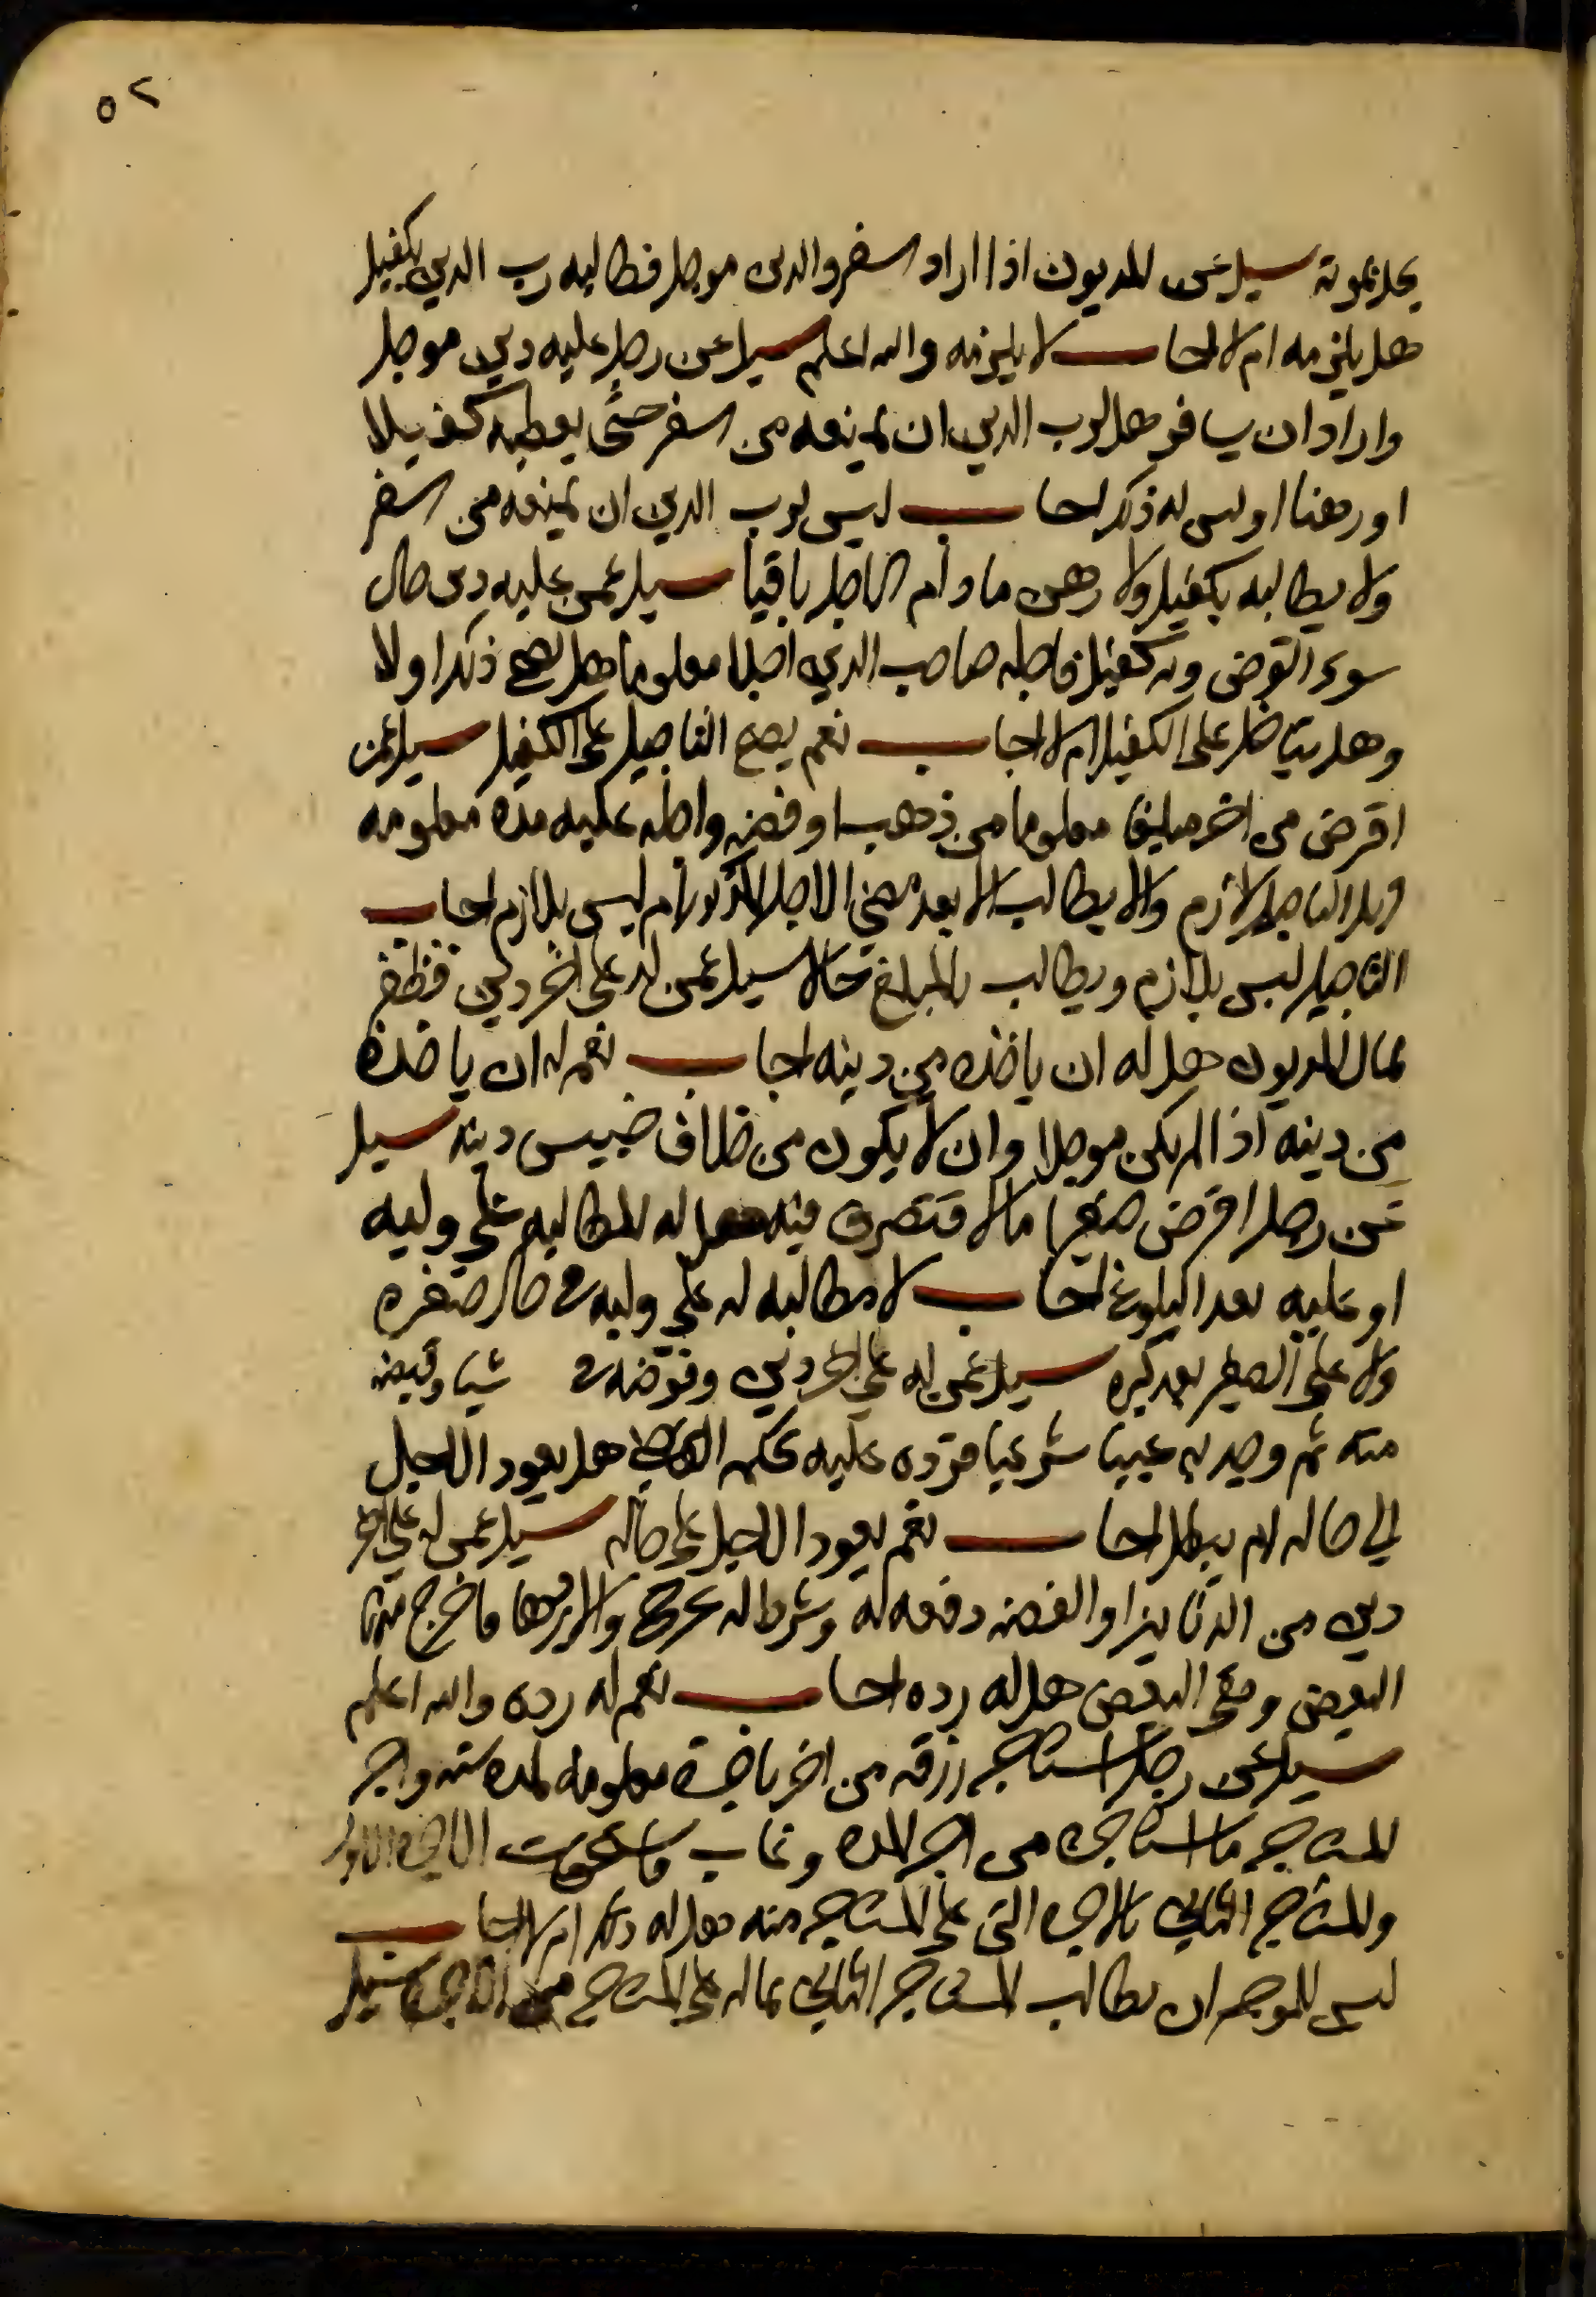 ٥٢
يحل بموته سيل عن المديون اذا اراد السفر والدين موجل فطالبه رب الدين بكفيل
هل يلزمه ام لا اجاب لا يلزمه والله اعلم سيل عن رجل عليه دين موجل
واراد ان يسافر هل لرب الدين ان يمنعه من السفر حتى يعطيه كفيلا
او رهنا او ليس له ذلك اجاب ليس لرب الدين ان يمنعه من السفر
ولا يطالبه بكفيل ولا رهن ما دام الاجل باقيا سيل عمن عليه دين حال
سوى القرض وبه كفيل فاجله صاحب الدين اجلا معلوما هل يصح ذلك اولا
وهل يتاجل على الكفيل ام لا اجاب نعم يصح التاجيل على الكفيل سيل عمن
اقرض من اخر مبلغا معلوما من ذهب او فضه واجله عليه مده معلومه
فهل التاجيل لازم ولا يطالب الا بعد مضي الاجل المذكور ام ليس بلازم اجاب
التاجيل ليس بلازم ويطالب بالمبلغ حالا سيل عمن له على اخر دين فظفر
بمال المديون هل له ان ياخذه من دينه اجاب نعم له ان ياخذه
من دينه اذا لم يكن موجلا وان لا يكون من خلاف جنس دينه سيل
عن رجل اقرض صغيرا مالا فتصرف فيه هل له المطالبه على وليه
او عليه بعد البلوغ اجاب لا مطالبه له على وليه في حال صغره
ولا على الصغير بعد كبره سيل عمن له على اخر دين وعوضه شيا وقبضه
منه ثم وجد به عيبا شرعيا فرده عليه بحكم القاضي هل يعود الاجل
الي حاله ام يبطل اجاب نعم يعود الاجل على حاله سيل عمن له على اخر
دين من الدنانير او الفضه دفعه له وشرط له خرج والا ردها فاخرج منها
البعض وبقى البعض هل له رده اجاب نعم له رده والله اعلم
سيل عن رجل استاجر رزقه من اخر باجرة معلومه لمده سنه واجر
المستاجر ما استاجره من اخر المده وغاب الاجره الاول
والمستاجر الثاني بالاجره التي على المستاجر منه هل له ذلك ام لا اجاب
ليس للموجر ان يطالب المستاجر الثاني بماله على المستاجر من الاجره سيل